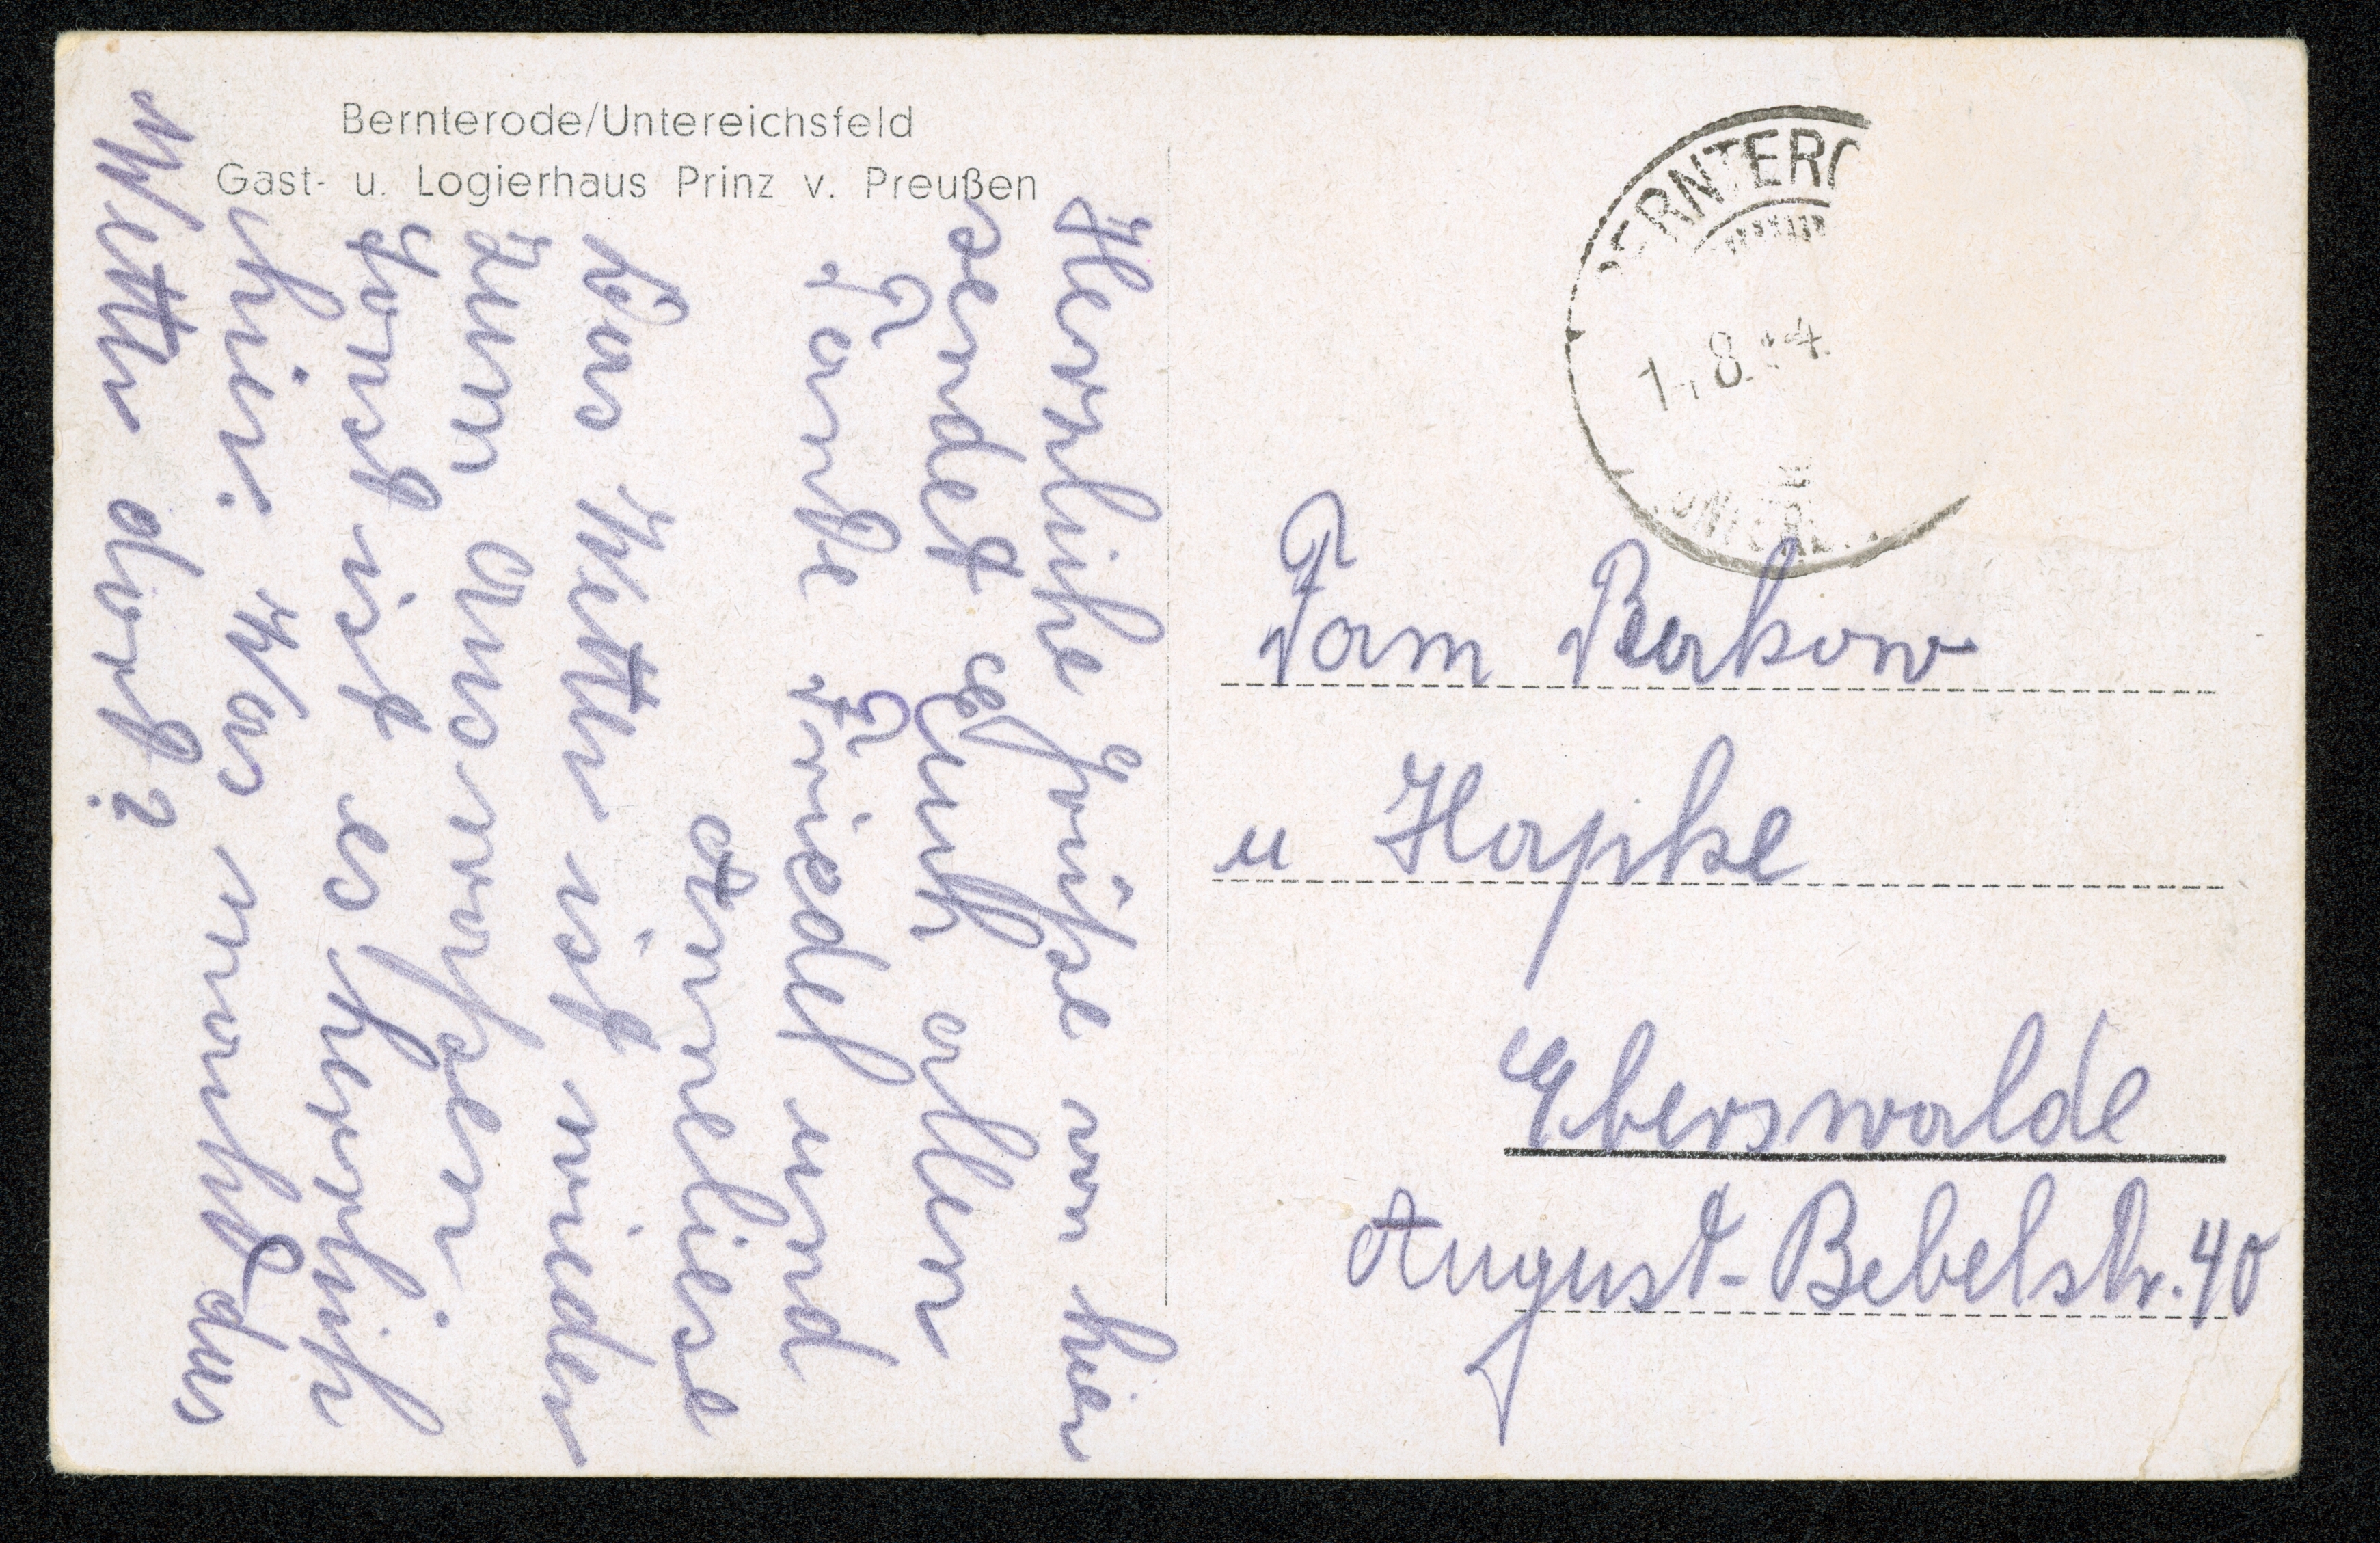 Bernterode/Untereichsfeld
Gast- u. Logierhaus Prinz v. Preußen
Herzliche Grüße von hier
sendet Euch allen
Tante Friedel und
Anneliese
Das Wetter ist wieder
zum Ausreißen
sonst ist es herrlich
hier. Was macht das
Wetter dort?
BERNTERO
1. 8. 4.
Fam Berkow
u Hapke
Eberswalde
August-Bebelstr. 40